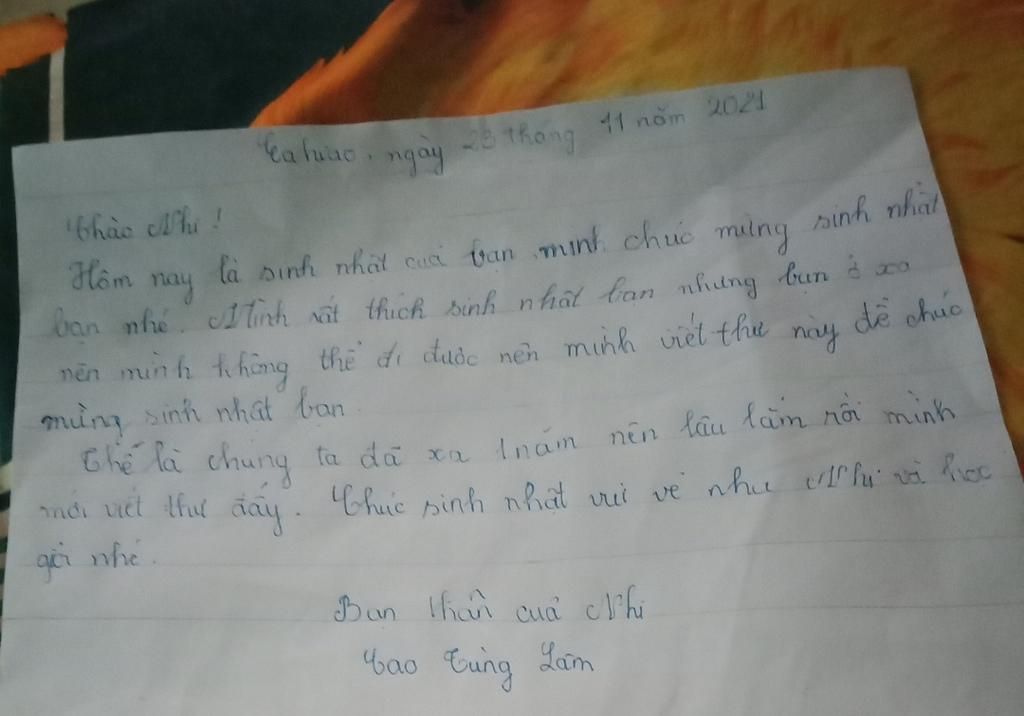 ngày 23 tháng 11 năm 2021
Chào Nhi!
Hôm nay là sinh nhật của bạn mình chúc mừng sinh nhật
bạn nhé. Mình rất thích sinh nhật bạn nhưng bạn ở xa
nên mình không thể đi được nên mình viết thư này để chúc
mừng sinh nhật bạn.
Thế là chúng ta đã xa 1 năm nên lâu lắm rồi mình
mới viết thư đấy. Chúc sinh nhật vui vẻ như Nhi và học
giỏi nhé.
Bạn thân của Nhi
Cao Tùng Lâm